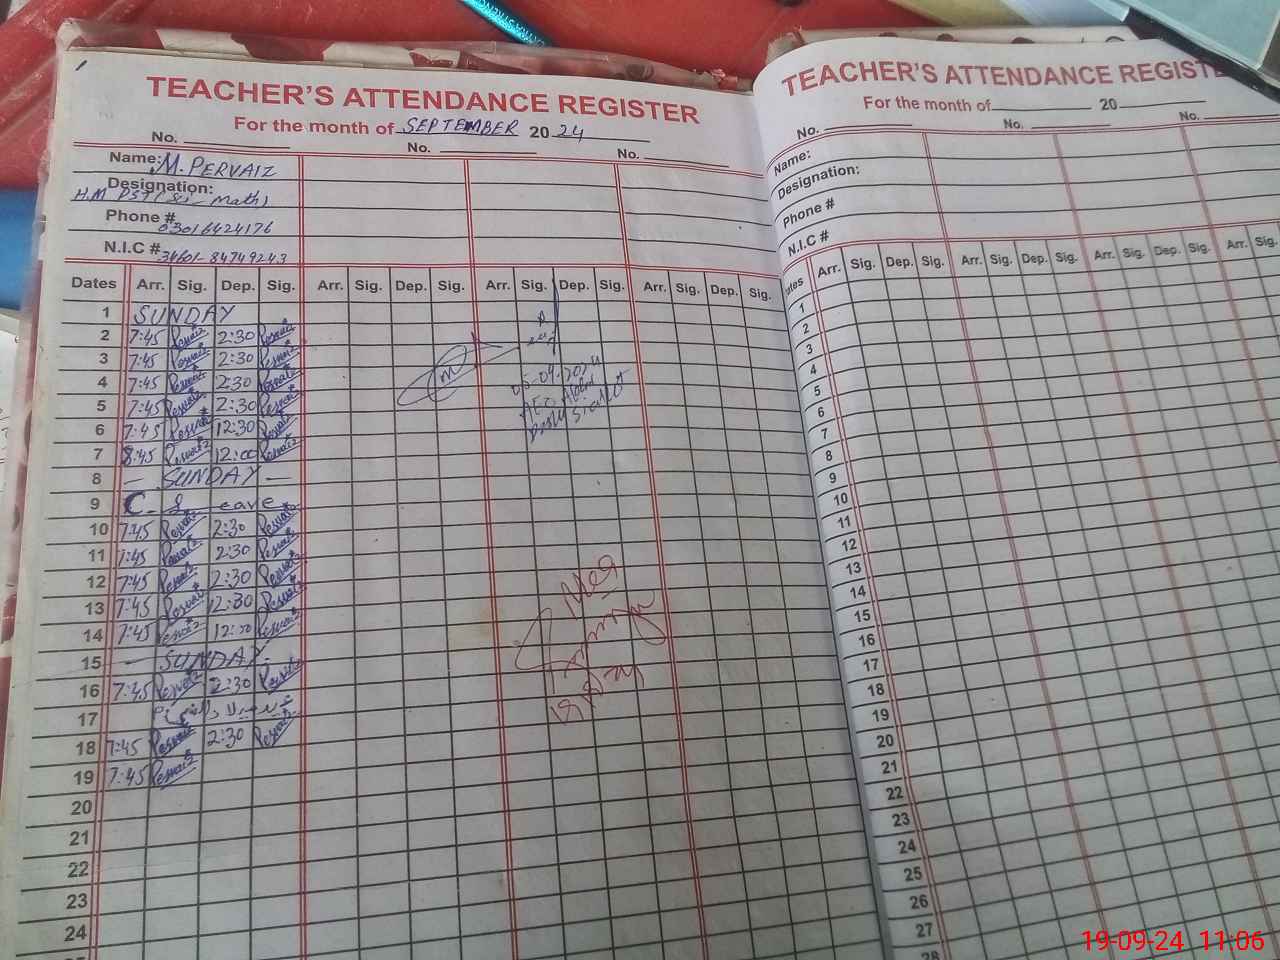 TEACHER'S ATTENDANCE REGISTER
For the month of SEPTEMBER 20 24
No. No. No.
Name: M. PERVAIZ
Designation:
H.M PST (Sci - Math)
Phone #
03016424176
N.I.C # 34601-84749243
Dates Arr. Sig. Dep. Sig. Arr. Sig. Dep. Sig. Arr. Sig. Dep. Sig. Arr. Sig. Dep. Sig.
1 SUNDAY
2 7:45 Pervaiz 2:30 Pervaiz
3 7:45 Pervaiz 2:30 Pervaiz
4 7:45 Pervaiz 2:30 Pervaiz
5 7:45 Pervaiz 2:30 Pervaiz
6 7:45 Pervaiz 12:30 Pervaiz
7 8:45 Pervaiz 12:00 Pervaiz
8 — SUNDAY —
9 C. Leave
10 7:45 Pervaiz 2:30 Pervaiz
11 7:45 Pervaiz 2:30 Pervaiz
12 7:45 Pervaiz 2:30 Pervaiz
13 7:45 Pervaiz 12:30 Pervaiz
14 7:45 Pervaiz 12:30 Pervaiz
15 — SUNDAY -
16 7:45 Pervaiz 2:30 Pervaiz
17 عید میلاد النبی
18 7:45 Pervaiz 2:30 Pervaiz
19 7:45 Pervaiz
20
21
22
23
24
05-09-2024
AEO
Sialkot
MEA
18/9/24
TEACHER'S ATTENDANCE REGISTE
For the month of 20
No. No. No.
Name:
Designation:
Phone #
N.I.C #
ates Arr. Sig. Dep. Sig. Arr. Sig. Dep. Sig. Arr. Sig. Dep. Sig. Arr. Sig.
1
2
3
4
5
6
7
8
9
10
11
12
13
14
15
16
17
18
19
20
21
22
23
24
25
26
27
28
19-09-24 11:06